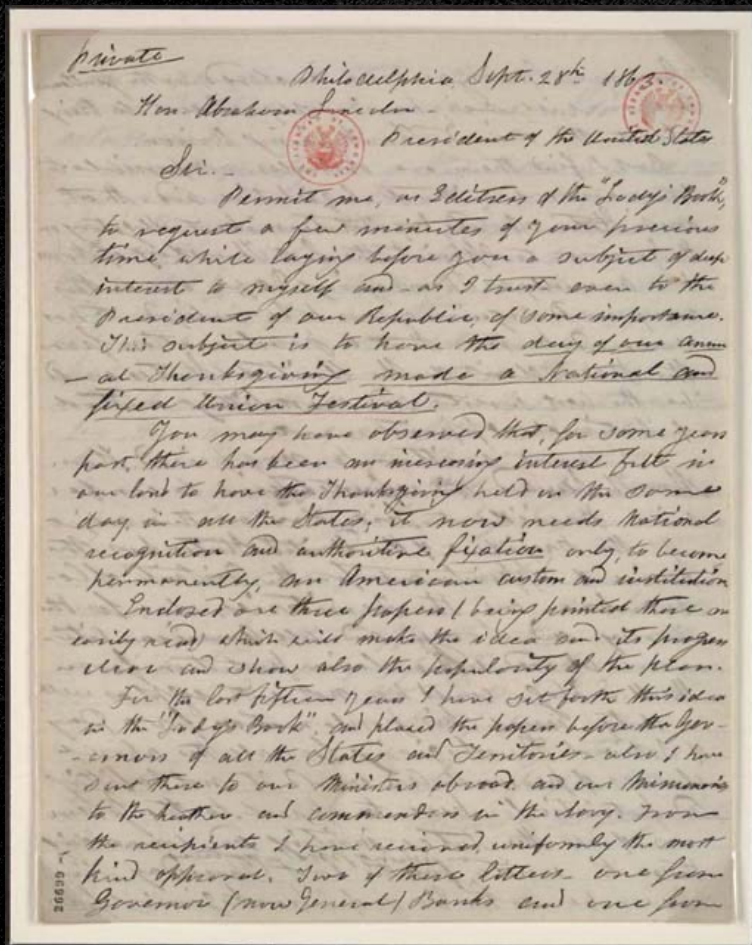 Private
Philadelphia, Sept. 28th 1863.
Hon. Abraham Lincoln -
President of the United States
Sir. -
Permit me, as Editress of the "Lady's Book",
to request a few minutes of your precious
time while laying before you a subject of deep
interest to myself and - as I trust - even to the
President of our Republic, of some importance.
This subject is to have the day of our annu
- al Thanksgiving made a National and
fixed Union Festival.
You may have observed that, for some years
past, there has been an increasing interest felt in
our land to have the Thanksgiving held on the same
day, in all the States; it now needs National
recognition and authoritive fixation, only, to become
permanently, an American custom and institution
Enclosed are three papers (being printed these are
easily read) which will make the idea and its progress
clear and show also the popularity of the plan.
For the last fifteen years I have set forth this idea
in the "Lady's Book", and placed the papers before the Gov-
-ernors of all the States and Territories - also I have
sent these to our Ministers abroad, and our Missionaries
to the heathen - and commanders in the Navy. From
the recipients I have received, uniformly the most
kind approval. Two of these letters - one from
Governor (now General) Banks and one from
26699-